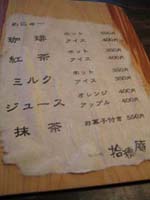 めにゅー
珈琲 ホット 350円
アイス 400円
紅茶 ホット 350円
アイス 400円
ミルク ホット 350円
アイス 400円
ジュース オレンジ 400円
アップル 400円
抹茶 お菓子付き 550円